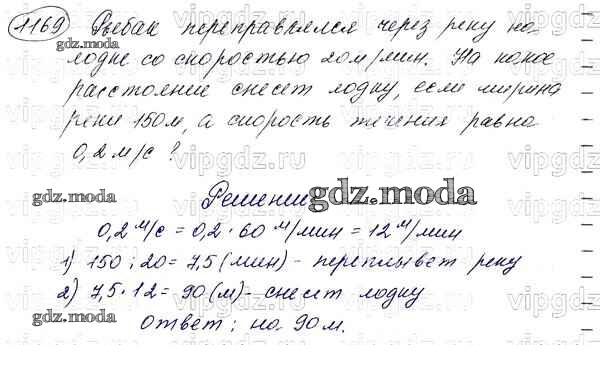 1169 Рыбак переправлялся через реку на
лодке со скоростью 20 м/мин. На какое
расстояние снесет лодку, если ширина
реки 150 м, а скорость течения равна
0,2 м/с?
Решение
0,2 м/с = 0,2 · 60 м/мин = 12 м/мин
1) 150 : 20 = 7,5 (мин) - переплывет реку
2) 7,5 · 12 = 90 (м) - снесет лодку
Ответ: на 90 м.
gdz.moda
gdz.moda
gdz.moda
gdz.moda
gdz.moda
vipgdz.ru